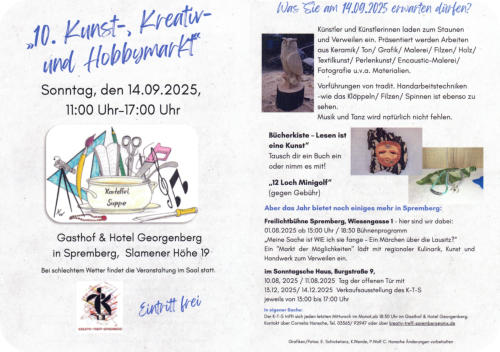 „10. Kunst-, Kreativ-
und Hobbymarkt“
Sonntag, den 14.09.2025,
11:00 Uhr-17:00 Uhr
Kartoffel
Suppe
Gasthof & Hotel Georgenberg
in Spremberg, Slamener Höhe 19
Bei schlechtem Wetter findet die Veranstaltung im Saal statt.
KREATIV-TREFF-SPREMBERG
Eintritt frei
Was Sie am 14.09.2025 erwarten dürfen?
Künstler und Künstlerinnen laden zum Staunen
und Verweilen ein. Präsentiert werden Arbeiten
aus Keramik/ Ton/ Grafik/ Malerei/ Filzen/ Holz/
Textilkunst/ Perlenkunst/ Encaustic-Malerei/
Fotografie u.v.a. Materialien.
Vorführungen von tradit. Handarbeitstechniken
-wie das Klöppeln/ Filzen/ Spinnen ist ebenso zu
sehen.
Musik und Tanz wird natürlich nicht fehlen.
Bücherkiste – Lesen ist
eine Kunst“
Tausch dir ein Buch ein
oder nimm es mit!
„12 Loch Minigolf“
(gegen Gebühr)
Aber das Jahr bietet noch einiges mehr in Spremberg:
Freilichtbühne Spremberg, Wiesengasse 1 - hier sind wir dabei:
01.08.2025 ab 15:00 Uhr / 18:30 Bühnenprogramm
„Meine Sache ist WIE ich sie fange – Ein Märchen über die Lausitz?“
Ein "Markt der Möglichkeiten" lädt mit regionaler Kulinarik, Kunst und
Handwerk zum Verweilen ein.
im Sonntagsche Haus, Burgstraße 9,
10.08, 2025 / 11.08.2025 Tag der offenen Tür mit
13.12, 2025/ 14.12.2025 Verkaufsausstellung des K-T-S
jeweils von 13:00 bis 17:00 Uhr
In eigener Sache:
Der K-T-S trifft sich jeden letzten Mittwoch im Monat,ab 18:30 Uhr im Gasthof & Hotel Georgenberg.
Kontakt über Cornelia Hansche, Tel. 03563/ 92947 oder über
Grafiken/Fotos: E. Schicketanz, K.Wende, P.Wolf C. Hansche Änderungen vorbehalten